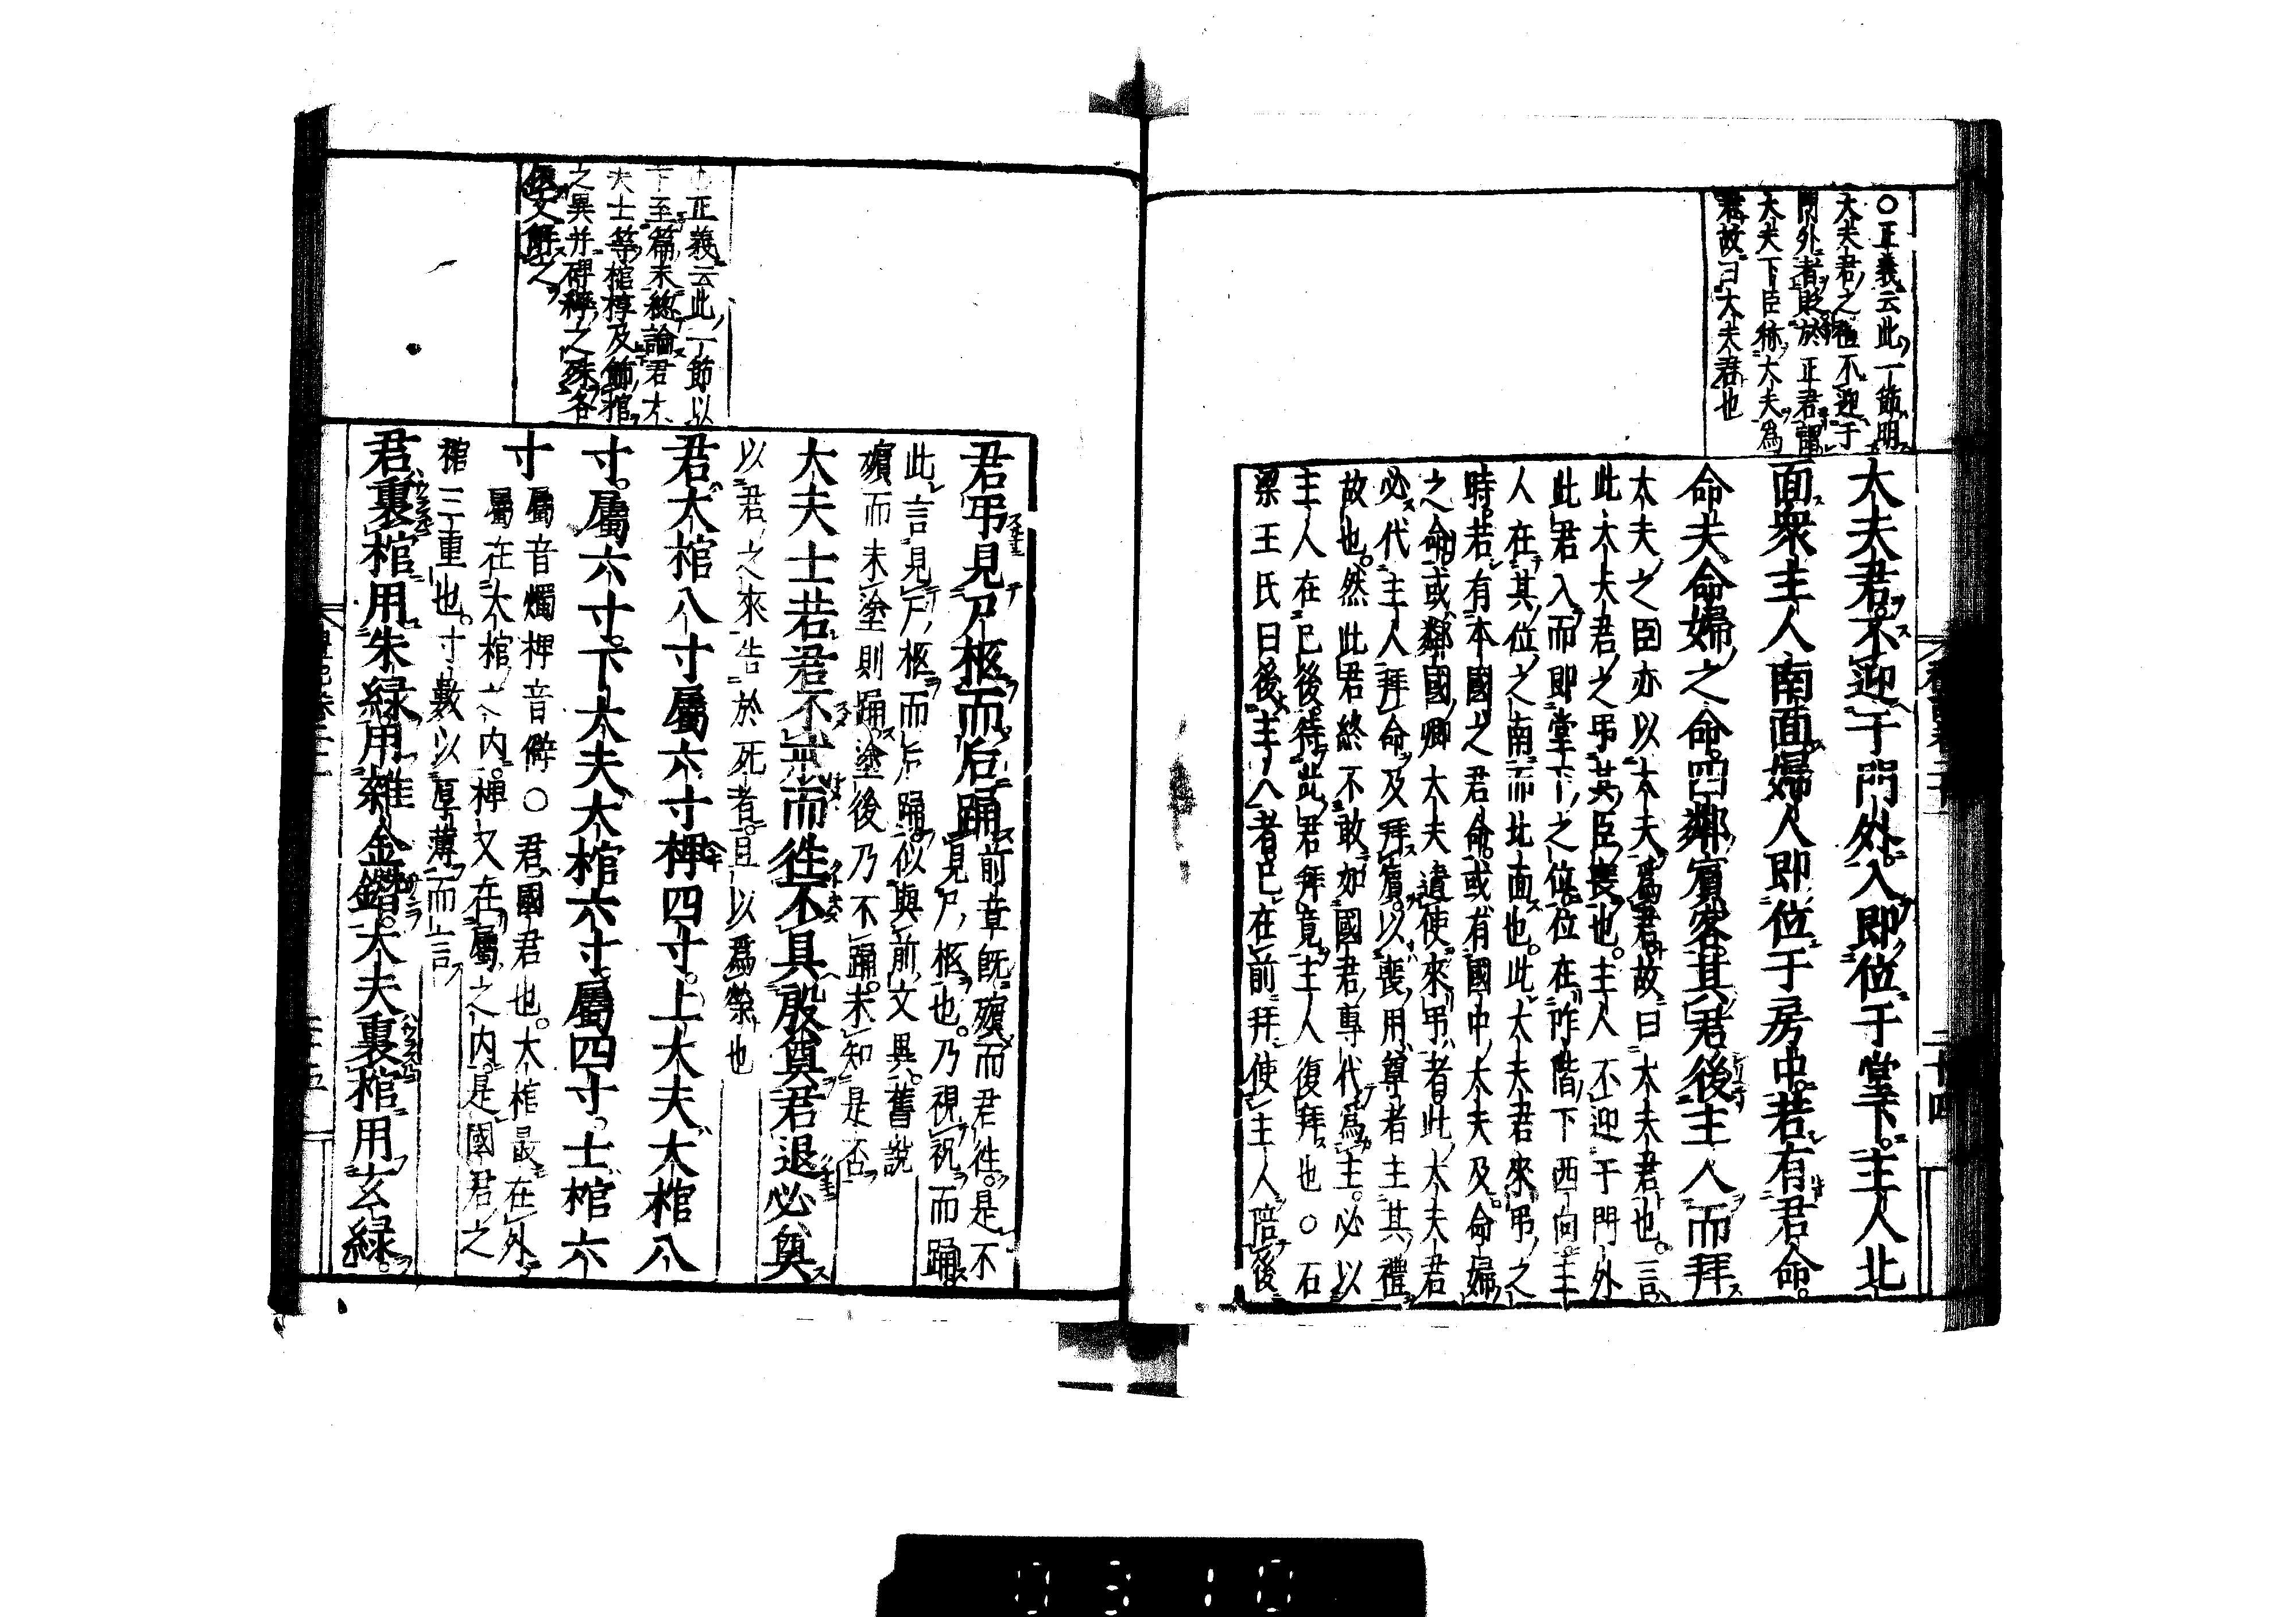 ○正義云此一節明
大夫君之禮不迎于
門外者貶於正君謂
大夫下臣称大夫為
君故曰大夫君也
大夫君不迎于門外入即位于堂下主人北
面衆主人南面婦人即位于房中若有君命
命夫命婦之命四鄰賓客其君後主人而拜
大夫之臣亦以大夫爲君故曰大夫君也言
此大夫君之弔其臣喪也主人不迎于門外
此君入而即堂下之位位在阼階下西向主
人在其位之南而北面也此大夫君來弔之
時若有本國之君命或有國中大夫及命婦
之命或鄰國卿大夫遣使來弔者此大夫君
必代主人拜命及拜賓以喪用尊者主其禮
故也然此君終不敢如國君專代爲主必以
主人在己後待此君拜竟主人復拜也○石
梁王氏曰後主人者己在前拜使主人陪後
君弔見尸柩而后踊前章既殯而君徃是不
見尸柩也乃視祝而踊
此言見尸柩而后踊似與前文異舊說
殯而未塗則踊塗後乃不踊未知是否
大夫士若君不戒而徃不具殷奠君退必奠
以君之來告於死者且以爲榮也
正義云此一節以
下至篇末緫論君大
夫士等棺椁及飾棺
之異并碑繂之殊各
依文解之
君大棺八寸屬六寸椑四寸上大夫大棺八
寸屬六寸下大夫大棺六寸屬四寸士棺六
寸屬音燭椑音僻○君國君也大棺最在外
屬在大棺之内椑又在屬之内是國君之
棺三重也寸數以厚薄而言
君裏棺用朱緑用雜金鐕大夫裏棺用玄緑
二十四
二十五
0310